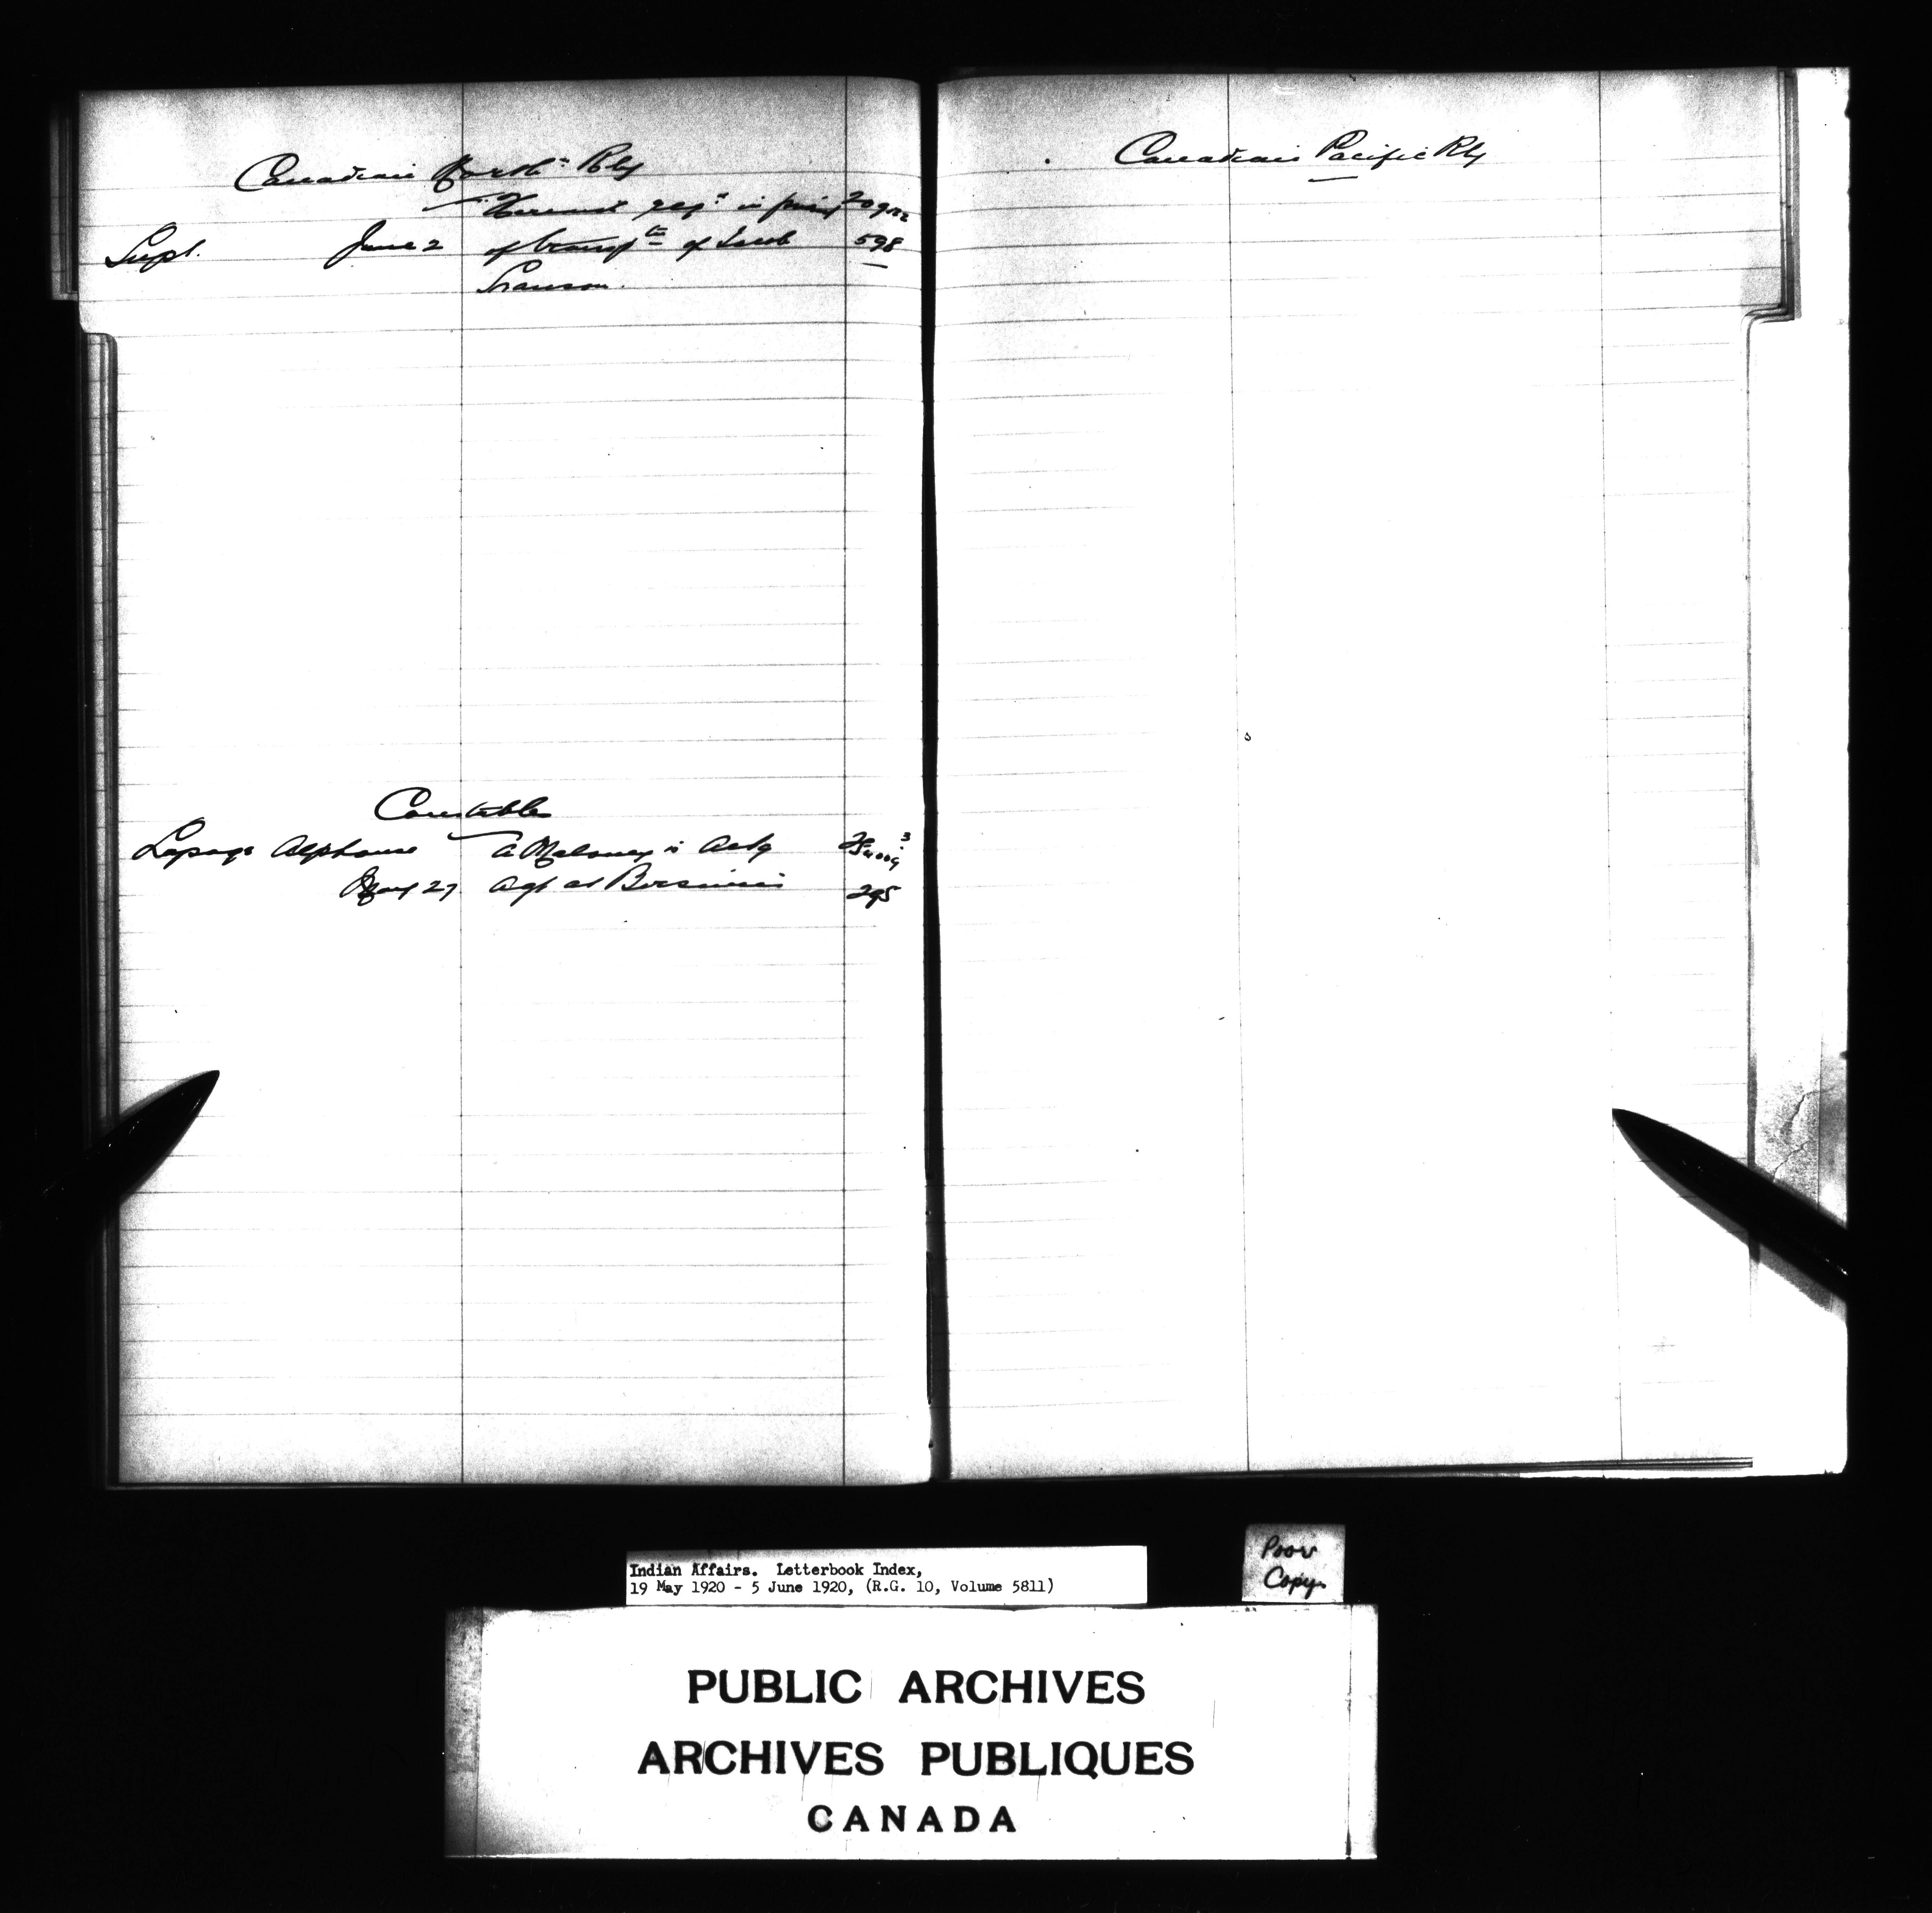 Canadian North= Rly
in 209122
Supt. June 2 of transp tn of Jacob 598
Constable
Lepage Alphonse A Maloney is Actg
May 27 Agt at Bersimis 295
Canadian Pacific Rly
Indian Affairs. Letterbook Index,
19 May 1920 - 5 June 1920, (R.G. 10, Volume 5811)
Poor
Copy.
PUBLIC ARCHIVES
ARCHIVES PUBLIQUES
CANADA